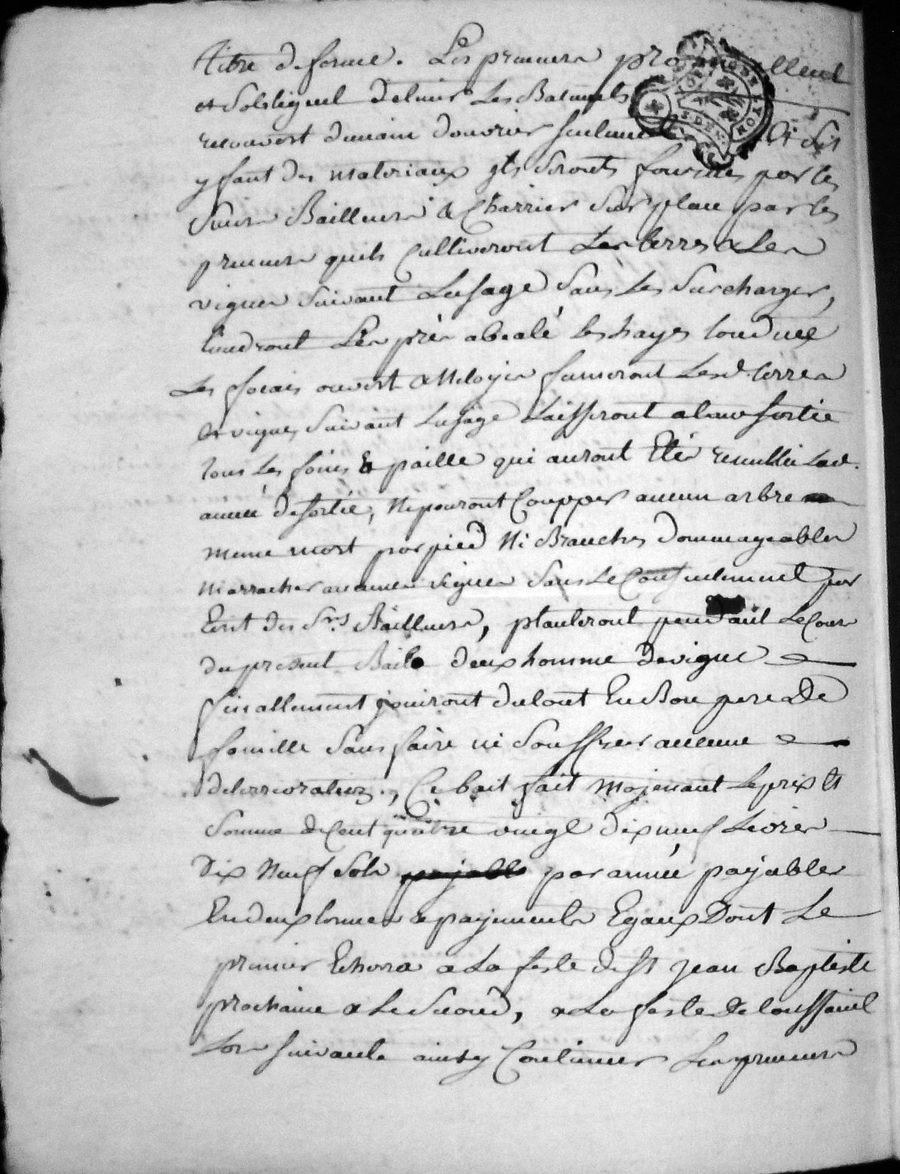 titre de ferme. Les preneurs pro
et sobligent de tenir Les Batimens
recouvert de main douvrier seulement
y faut des materiaux ils seronts fournies par les
sieurs Bailleurs & Charrier sur place par les
preneurs quils Cultiveront Les terres & Les
vignes suivant Lusage sans Les surcharger,
tiendront Les prés a bealé les hayes tondues
Les fossés ouvert & netoyés fumeront Lesd. terres
et vignes suivant Lusage Laisseront a leur sortie
tous Les foins & paille qui auront Eté recuillies Lad.
année de sortie, Ne pouront Coupper aucun arbre
meme mort par pied Ni Branches dommageables
ni arracher aucunes vignes sans Le Consentement par
Ecrit des Srs Bailleurs, planteront pendant Le Cours
du present Bail deux homme de vigne
finallement jouiront du tout En Bon pere de
famille sans faire ni souffrir aucune
deterioration, Ce bail fait moyenant Le prix et
somme de Cent quatre vingt dix neuf Livres
dix Neuf sols par année payables
En deux termes & payements Egaux Dont Le
premier Echera a La feste de St jean Baptiste
prochaine & Le second, a La feste de toussaint
Lors suivante ainsy Continuer Les preneurs
DE LYON